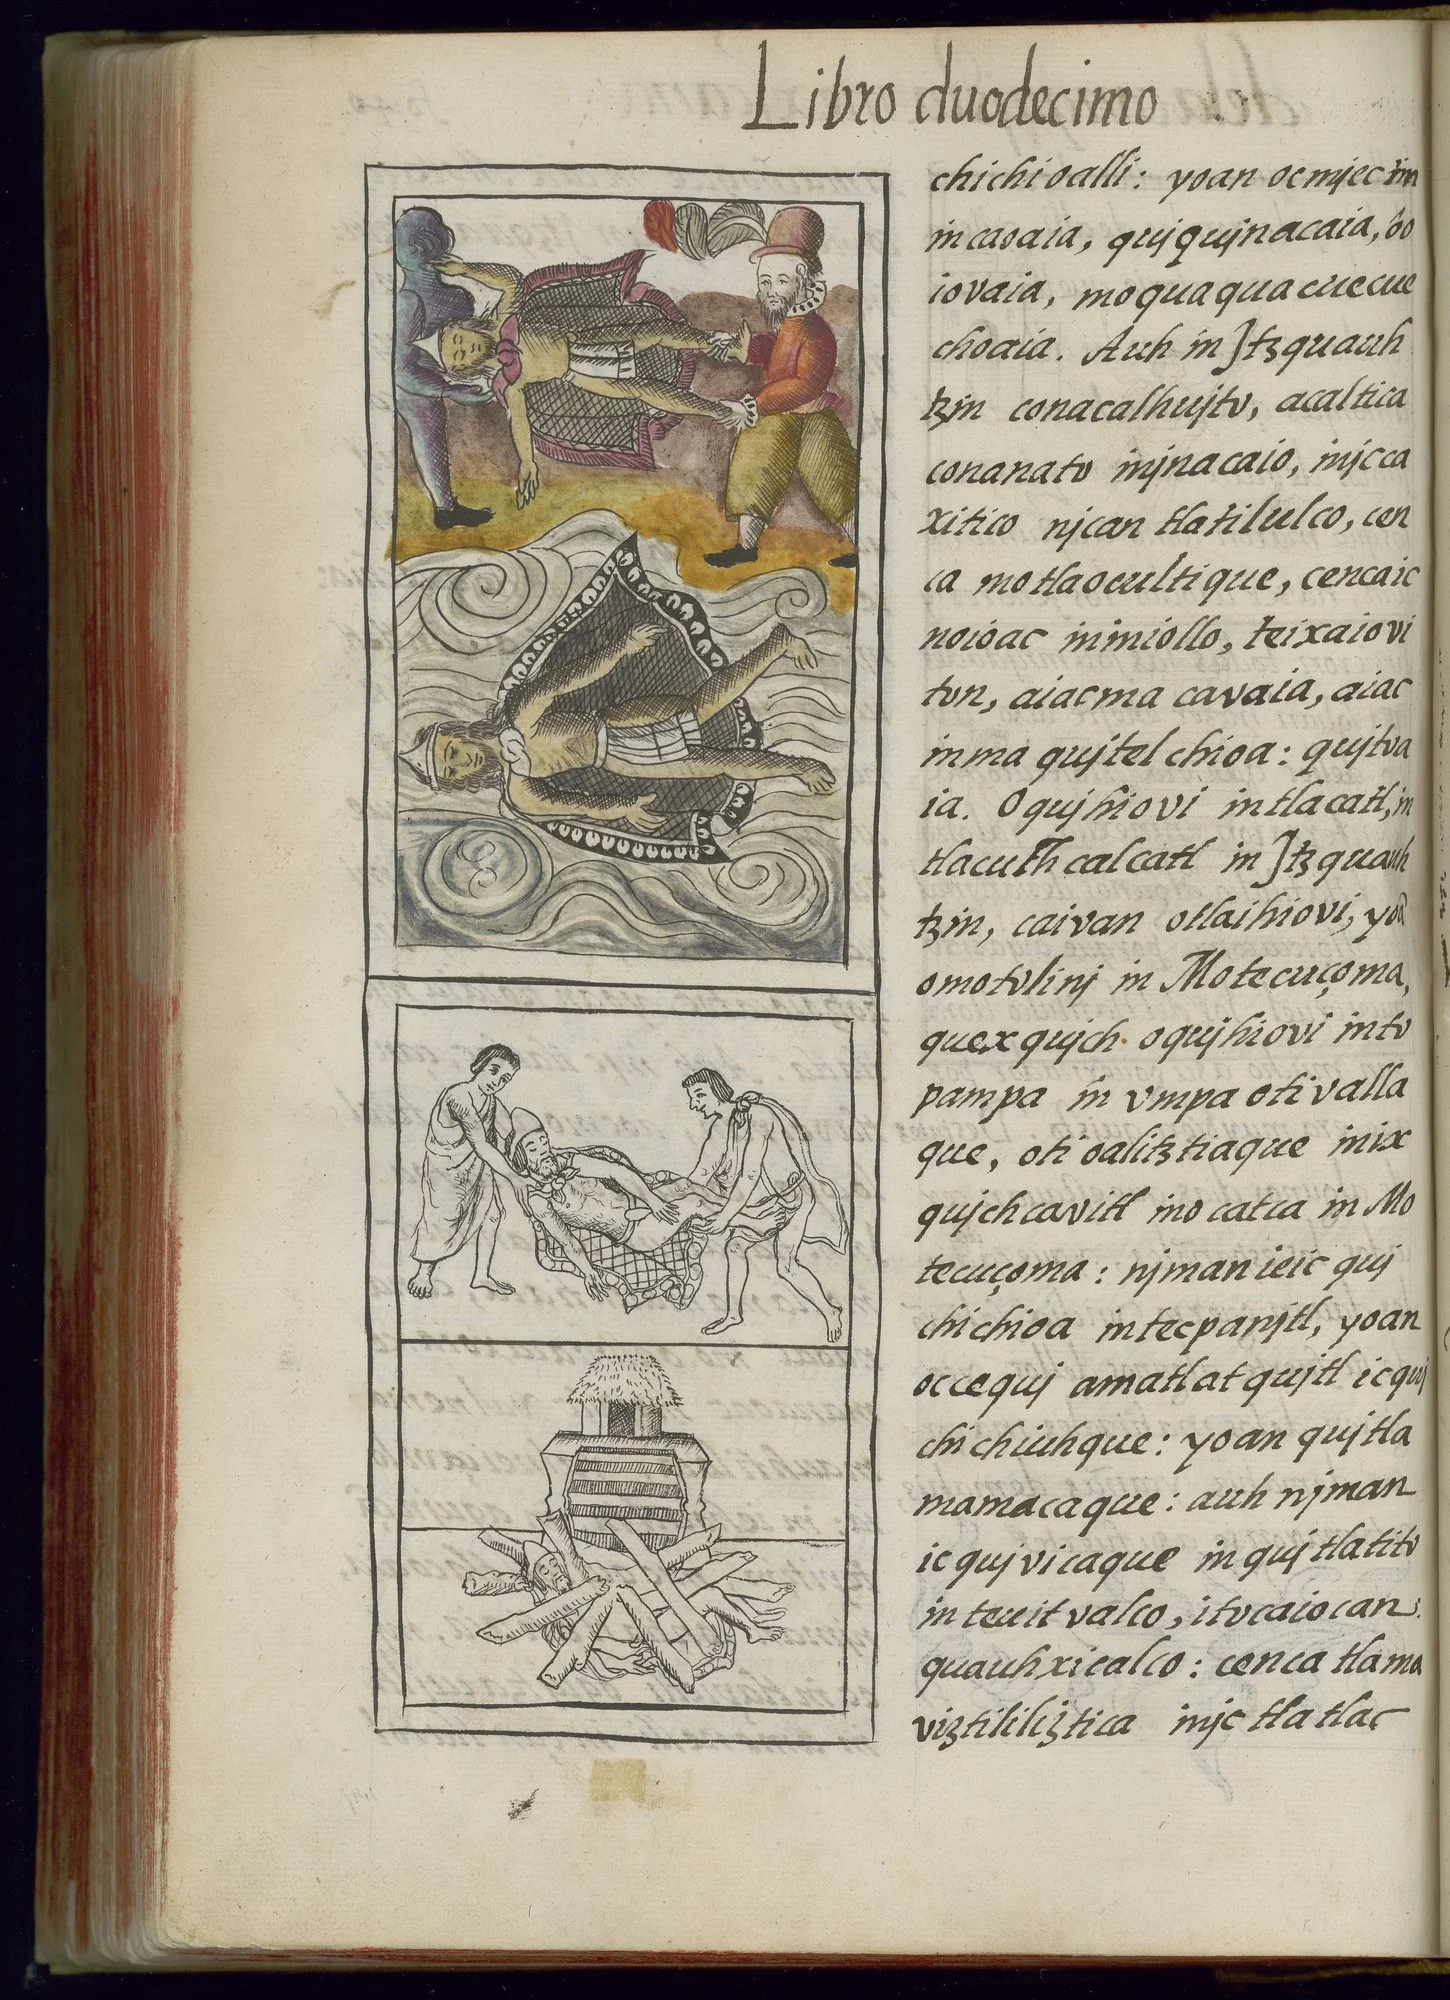 Libro duodecimo
chichioalli: yoan oc mjec ỹm
incaoaia, quiquinacaia, ỏo
iovaia, moquaquacuecue
choaia. Auh in Jtzquauh
tzin conacalhujto, acaltica
conanato injnacaio, injc ca
xitico njcan tlatilulco, cen
ca motlaocultique, cencaic
noioac ininiollo, teixaiovi
ton, aiac ma cavaia, aiac
inma qujtelchioa: qujtva
ia. Oqujhiovi intlacatl, in
tlacuchcalcatl in Jtzquauh
tzin, caivan otlaihiovi, yoã
omotolinj in Motecuçoma,
quexqujch oqujhiovi into
pampa in vmpa otivalla
que, oti oalitztiaque in ix
qujchcavitl ino catca in Mo
tecuçoma: njman ieic quj
chichioa intecpanjtl, yoan
occequj amatlatqujtl ic quj
chichiuhque: yoan qujtla
mamacaque: auh njman
ic qujvicaque in qujtlatito
inteuitvalco, itocaiocan
quauhxicalco: cenca tlama
viztililiztica injc tlatlac